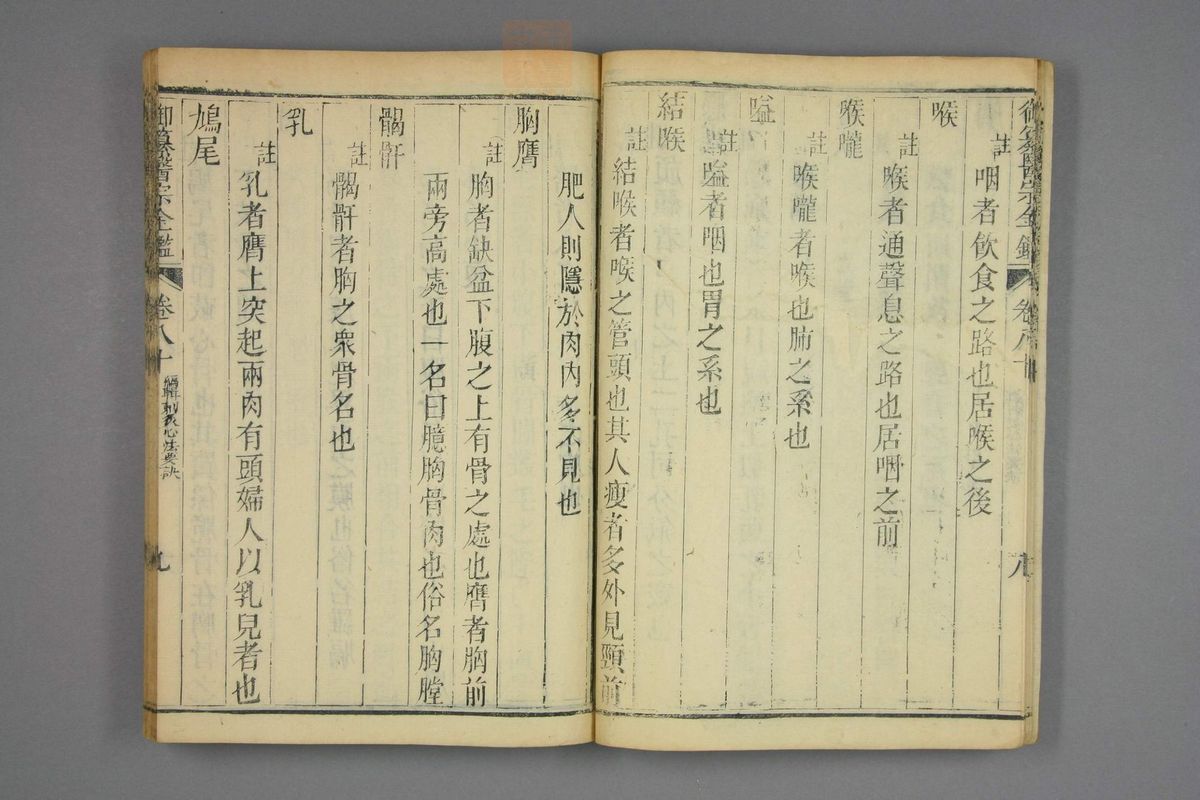 御纂醫宗全鑑 卷八十 八
註 咽者飲食之路也居喉之後
喉
註 喉者通聲息之路也居咽之前
喉嚨
註 喉嚨者喉也肺之系也
嗌
註 嗌者咽也胃之系也
結喉
註 結喉者喉之管頭也其人瘦者多外見頸前
肥人則隱於肉內多不見也
胸膺
註 胸者缺盆下腹之上有骨之處也膺者胸前
兩旁高處也一名曰臆胸骨肉也俗名胸膛
𩩲骬
註 𩩲骬者胸之衆骨名也
乳
註 乳者膺上突起兩肉有頭婦人以乳兒者也
鳩尾
御纂醫宗全鑑 卷八十 編輯刺灸心法要訣 九